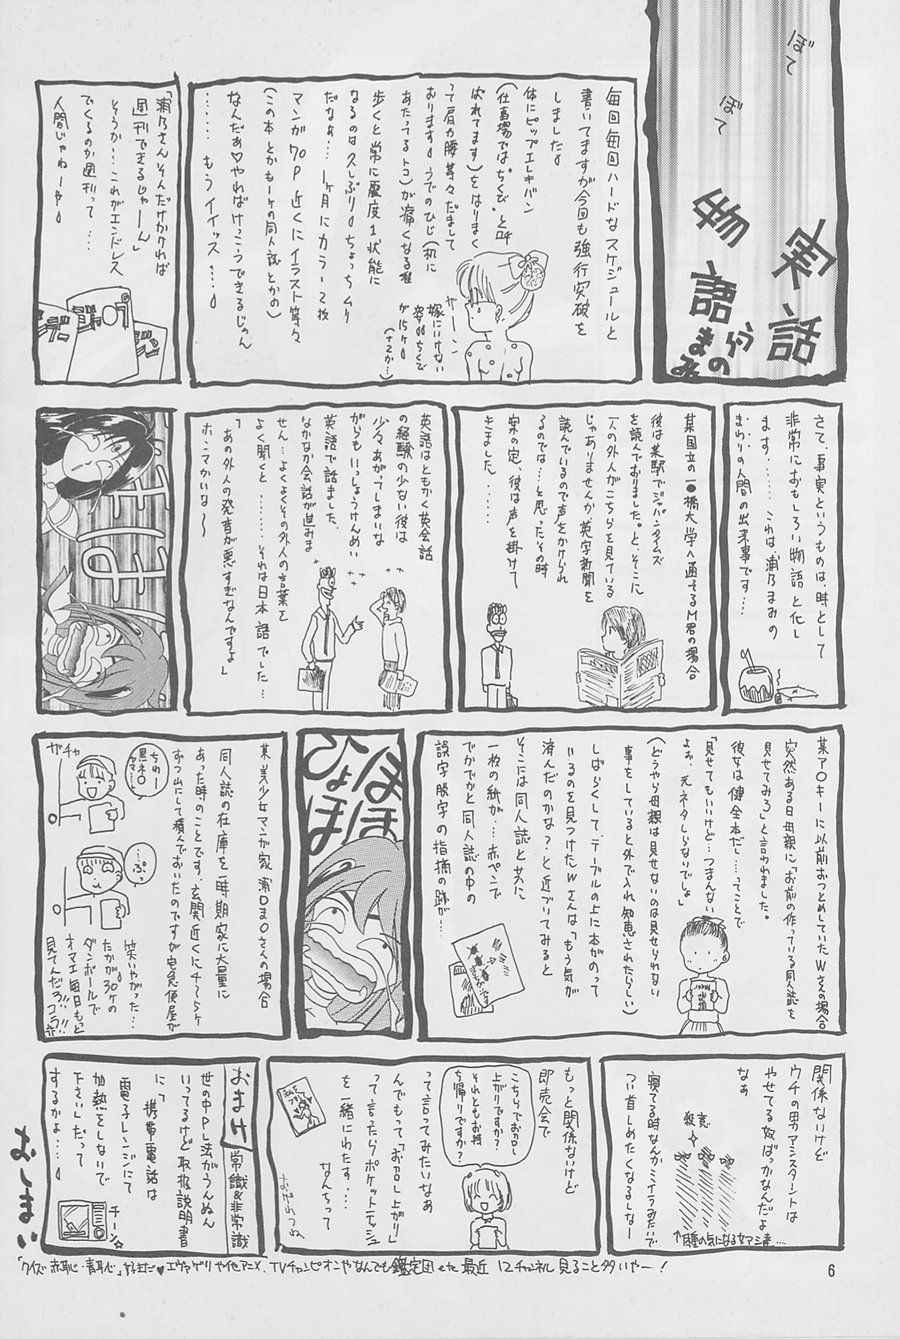 ぼて
ぼて
実話
物語
浦のまみ
毎回毎回ハードなスケジュールと
書いてますが今回も強行突破を
しました。
体にピップエレキバン
(仕事場では"ちくび"と呼
ばれてます)をはりまく
って肩や腰等々だまして
おります。うでのひじ(机に
あたってるトコ)が痛くなる程
歩くと常に震度1状態に
なるのは久しぶり。ちょっちムリ
だなぁ…。1ヶ月にカラー2枚
マンガ70P近くにイラスト等々
(この本とかもー1ヶの同人誌とかの)
なんだぁ♡やればけっこうできるじゃん
………もうイイッス…。
嫁にいけない
サーーン
「浦乃さんそんだけかければ
週刊できるじゃーん」
そうか…これがエンドレス
でくるのか週刊って…
人間じゃねーや。
さて事実というものは、時として
非常におもしろい物語と化し
ます……これは浦乃まみの
まわりの人間の出来事です…
某国立の一●橋大学へ通ってるM君の場合
彼は某駅でジャパンタイムズ
を読んでおりました。と、そこに
一人の外人がこちらを見ている
じゃありませんか英字新聞を
読んでいるので声をかけられ
るのでは…と思ったその時
案の定、彼は声を掛けて
きました………
英語はともかく英会話
の経験の少ない彼は
少々あがってしまいな
がらもいっしょうけんめい
英語で話ました。
なかなか会話が進みま
せん…よくよくその外人の言葉を
よく聞くと………それは日本語でした…
「あの外人の発音が悪すぎなんですよ」
ホンマかいな〜
某ア○キーに以前おつとめしていたWさんの場合
突然ある日母親に「お前の作っている同人誌を
見せてみろ」と言われました。
彼女は健全本だし…ってことで
「見せてもいいけど…つまんない
よぉ、元ネタしらないでしょ」
(どうやら母親は見せないのは見せられない
事をしていると外で入れ知恵されたらしい)
しばらくして、テーブルの上に本がのって
いるのを見つけたWさんは「もう気が
済んだのかな?」と近づいてみると
そこには同人誌と共に
一枚の紙が…赤ペンで
でかでかと同人誌の中の
誤字脱字の指摘の跡が…
ほほ
ひょほ
某、美少女マンガ家浦○ま○さんの場合
同人誌の在庫を一時期家に大量に
あった時のことです。玄関近くに4〜5ヶ
ずつ山にして積んでおいたのですが宅急便屋が
ガチャ
ちわー
黒ネ○
ヤマト
…ぷっ
笑いやがった…
たかが30ヶの
ダンボールで
オマエ毎日もっと
見てんだろ!!コラ!!
関係ないけど
ウチの男アシスタントは
やせてる奴ばっかなんだよ
なぁ
寝てる時なんかミイラみたいで
つい首しめたくなるしなー
殺意
もっと関係ないけど
即売会で
こちらでお召し
上がりですか?
それともお持
ち帰りですか?
って言ってみたいなぁ
んでもって「お召し上がり」
って言ったらポケットティッシュ
を一緒にわたす…
なんちって
おまけ
常識&非常識
世の中PL法がうんぬん
いってるけど取扱説明書
に、携帯電話は
電子レンジにて
加熱をしないで
下さいだって
するかよ…。
チーン☆
おしまい
「クイズ赤恥・青恥」、やるまだ♥エヴァゲリやイセアニメ、TVチャンピオンやなんでも鑑定団etc最近12チャンネル見ること多いやー!
6